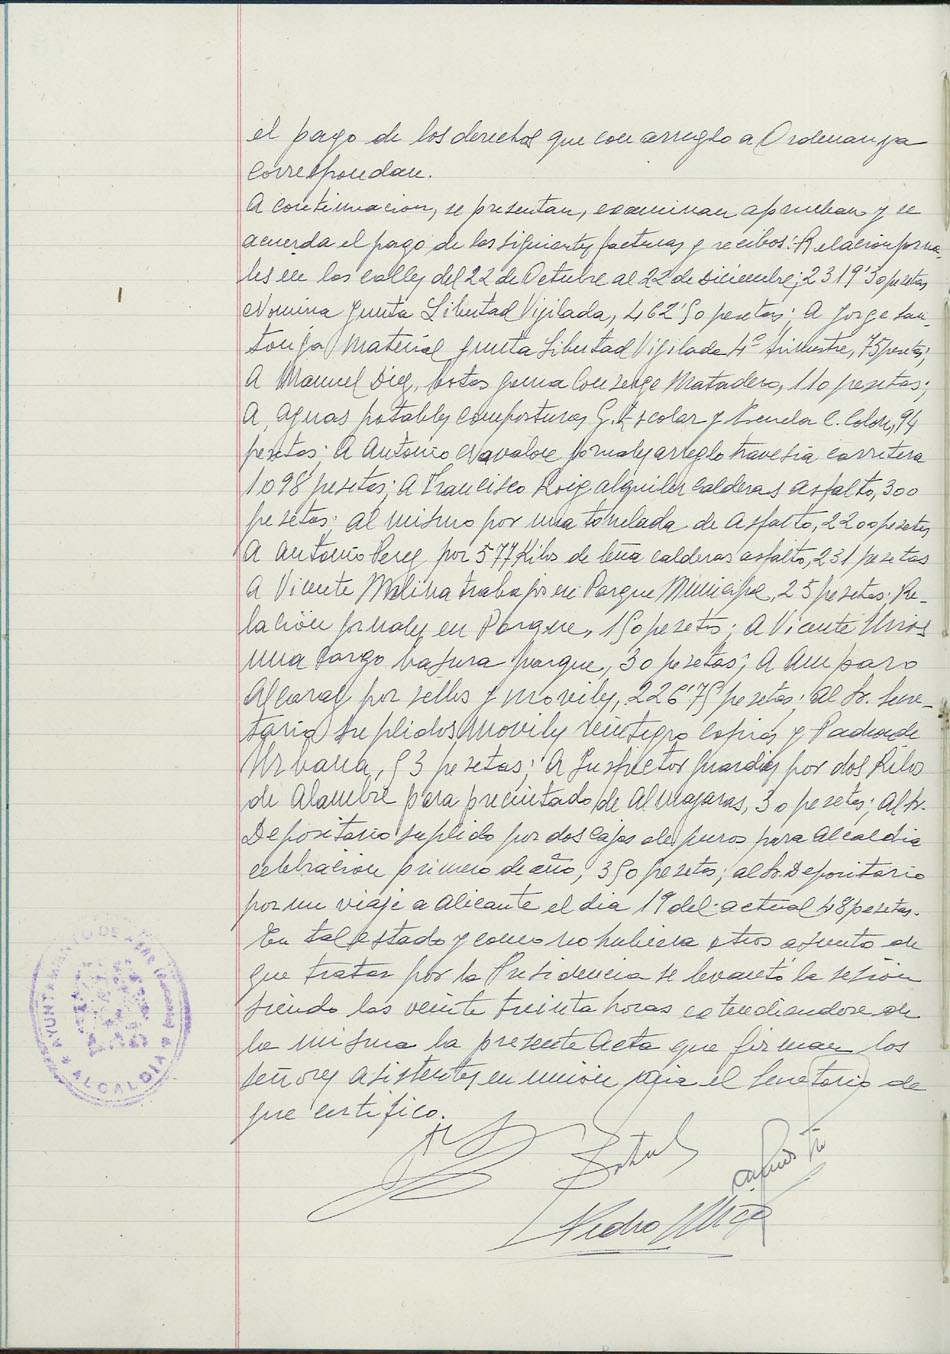 el pago de los derechos que con arreglo a Ordenanza
correspondan.
A continuacion, se presentan, examinan aprueban y se
acuerda el pago de las siguientes facturas y recibos: Relacion jorna-
les en las calles del 22 de Octubre al 22 de Diciembre; 2319'30 pesetas
Nomina Junta Libertad Vijilada, 462'50 pesetas; A Jorge San-
tonja Material Junta Libertad Vijilada 4º trimestre, 75 pesetas;
A Manuel Diez, botas goma Conserge Matadero, 110 pesetas;
A, aguas potables composturas G. Escolar y Escuela C. Colon, 94
pesetas; A Antonio Navalon jornales arreglo travesia carretera
1098 pesetas; A Francisco Roig alquiler calderas asfalto, 300
pesetas; al mismo por una tonelada de asfalto, 2200 pesetas
A Antonio Perez por 577 Kilos de leña calderas asfalto, 231 pesetas
A Vicente Molina trabajos en Parque Municipal, 25 pesetas. Re-
lación jornales en Parque, 150 pesetas; A Vicente
una cargo basura parque, 30 pesetas; A Amparo
Alcaraz por sellos y moviles, 226'75 pesetas; al Sr. Secre-
tario suplidos, moviles reintegro copias y Padron de
Urbana, 53 pesetas; A Inspector Guardias por dos Kilos
de Alambre para precintado de Almazaras, 30 pesetas; Al Sr.
Depositario suplido por dos cajas de puros para Alcaldia
celebracion primero de año, 350 pesetas; al Sr. Depositario
por un viaje a Alicante el dia 19 del actual 48 pesetas.
En tal estado y como no hubiera otros asunto de
que tratar por la Presidencia se levantó la sesión
siendo las veinte treinta horas extendiendose de
la misma la presente Acta que firman los
señores asistentes en union mia el Secretario de
que certifico.
Pedro
AYUNTAMIENTO DE
ALCALDIA